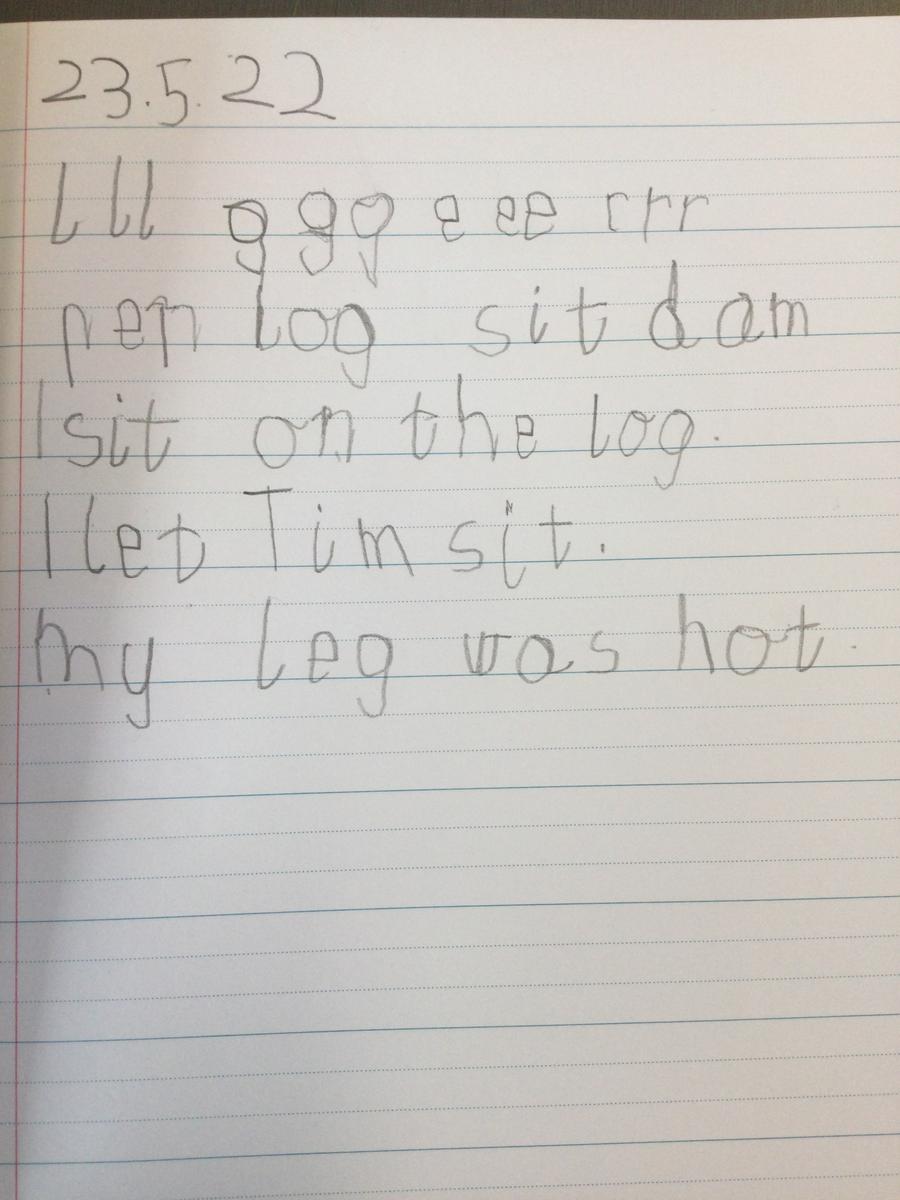 23.5.22
lll ggg eee rrr
pen log sit dam
I sit on the log.
I let Tim sit.
my leg was hot.